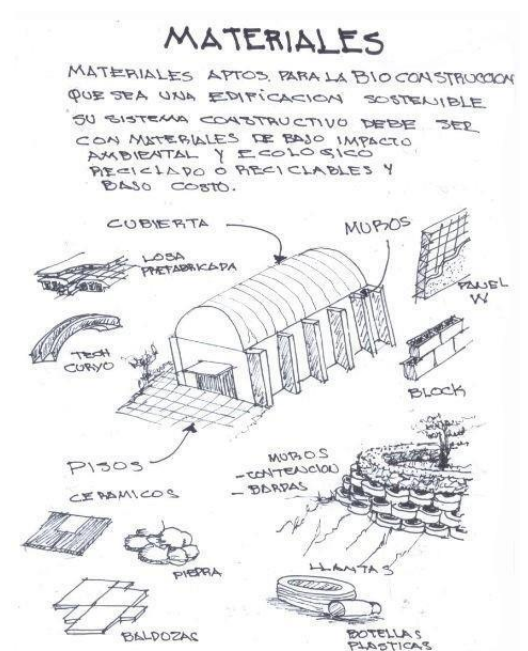 MATERIALES
MATERIALES APTOS, PARA LA BIO CONSTRUCCION
QUE SEA UNA EDIFICACION SOSTENIBLE
SU SISTEMA CONSTRUCTIVO DEBE SER
CON MATERIALES DE BAJO IMPACTO
AMBIENTAL Y ECOLOGICO
RECICLADO O RECICLABLES Y
BAJO COSTO.
CUBIERTA
MUROS
LOSA
PREFABRICADA
PANEL
W
TECH
CURVO
BLOCK
PISOS
CERAMICOS
MUROS
-CONTENCION
- BARDAS
PIEDRA
LLANTAS
BALDOZAS
BOTELLAS
PLASTICAS